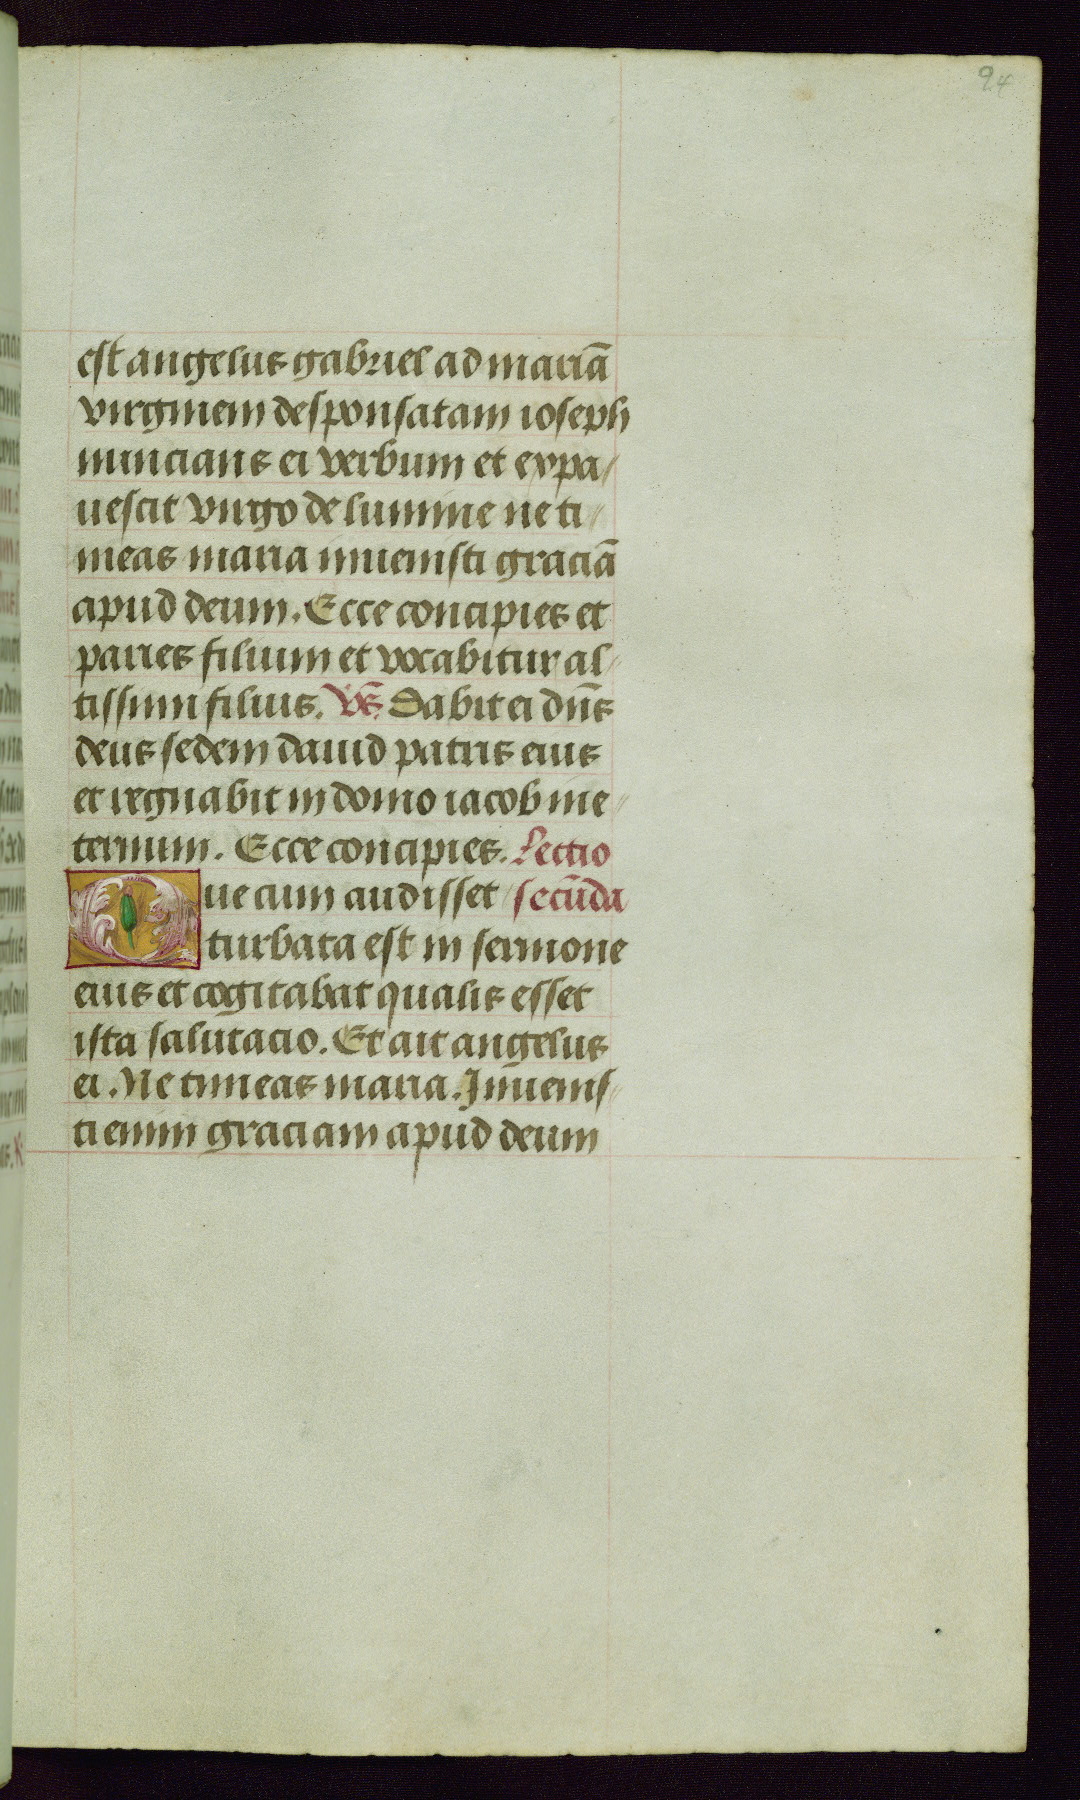 94
est angelus gabriel ad mariā
virginem desponsatam ioseph
nuncians ei verbum et expa/
uescit virgo de lumine ne ti/
meas maria inuenisti graciā
apud deum. Ecce concipies et
paries filium et vocabitur al/
tissimi filius. Vs̄. Dabit ei dn̄s
deus sedem dauid patris eius
et regnabit in domo iacob ine/
ternum. Ecce concipies. Lectio
Que cum audisset / secūda
turbata est in sermone
eius et cogitabat qualis esset
ista salutacio. Et ait angelus
ei. Ne timeas maria. Inuenis/
ti enim graciam apud deum